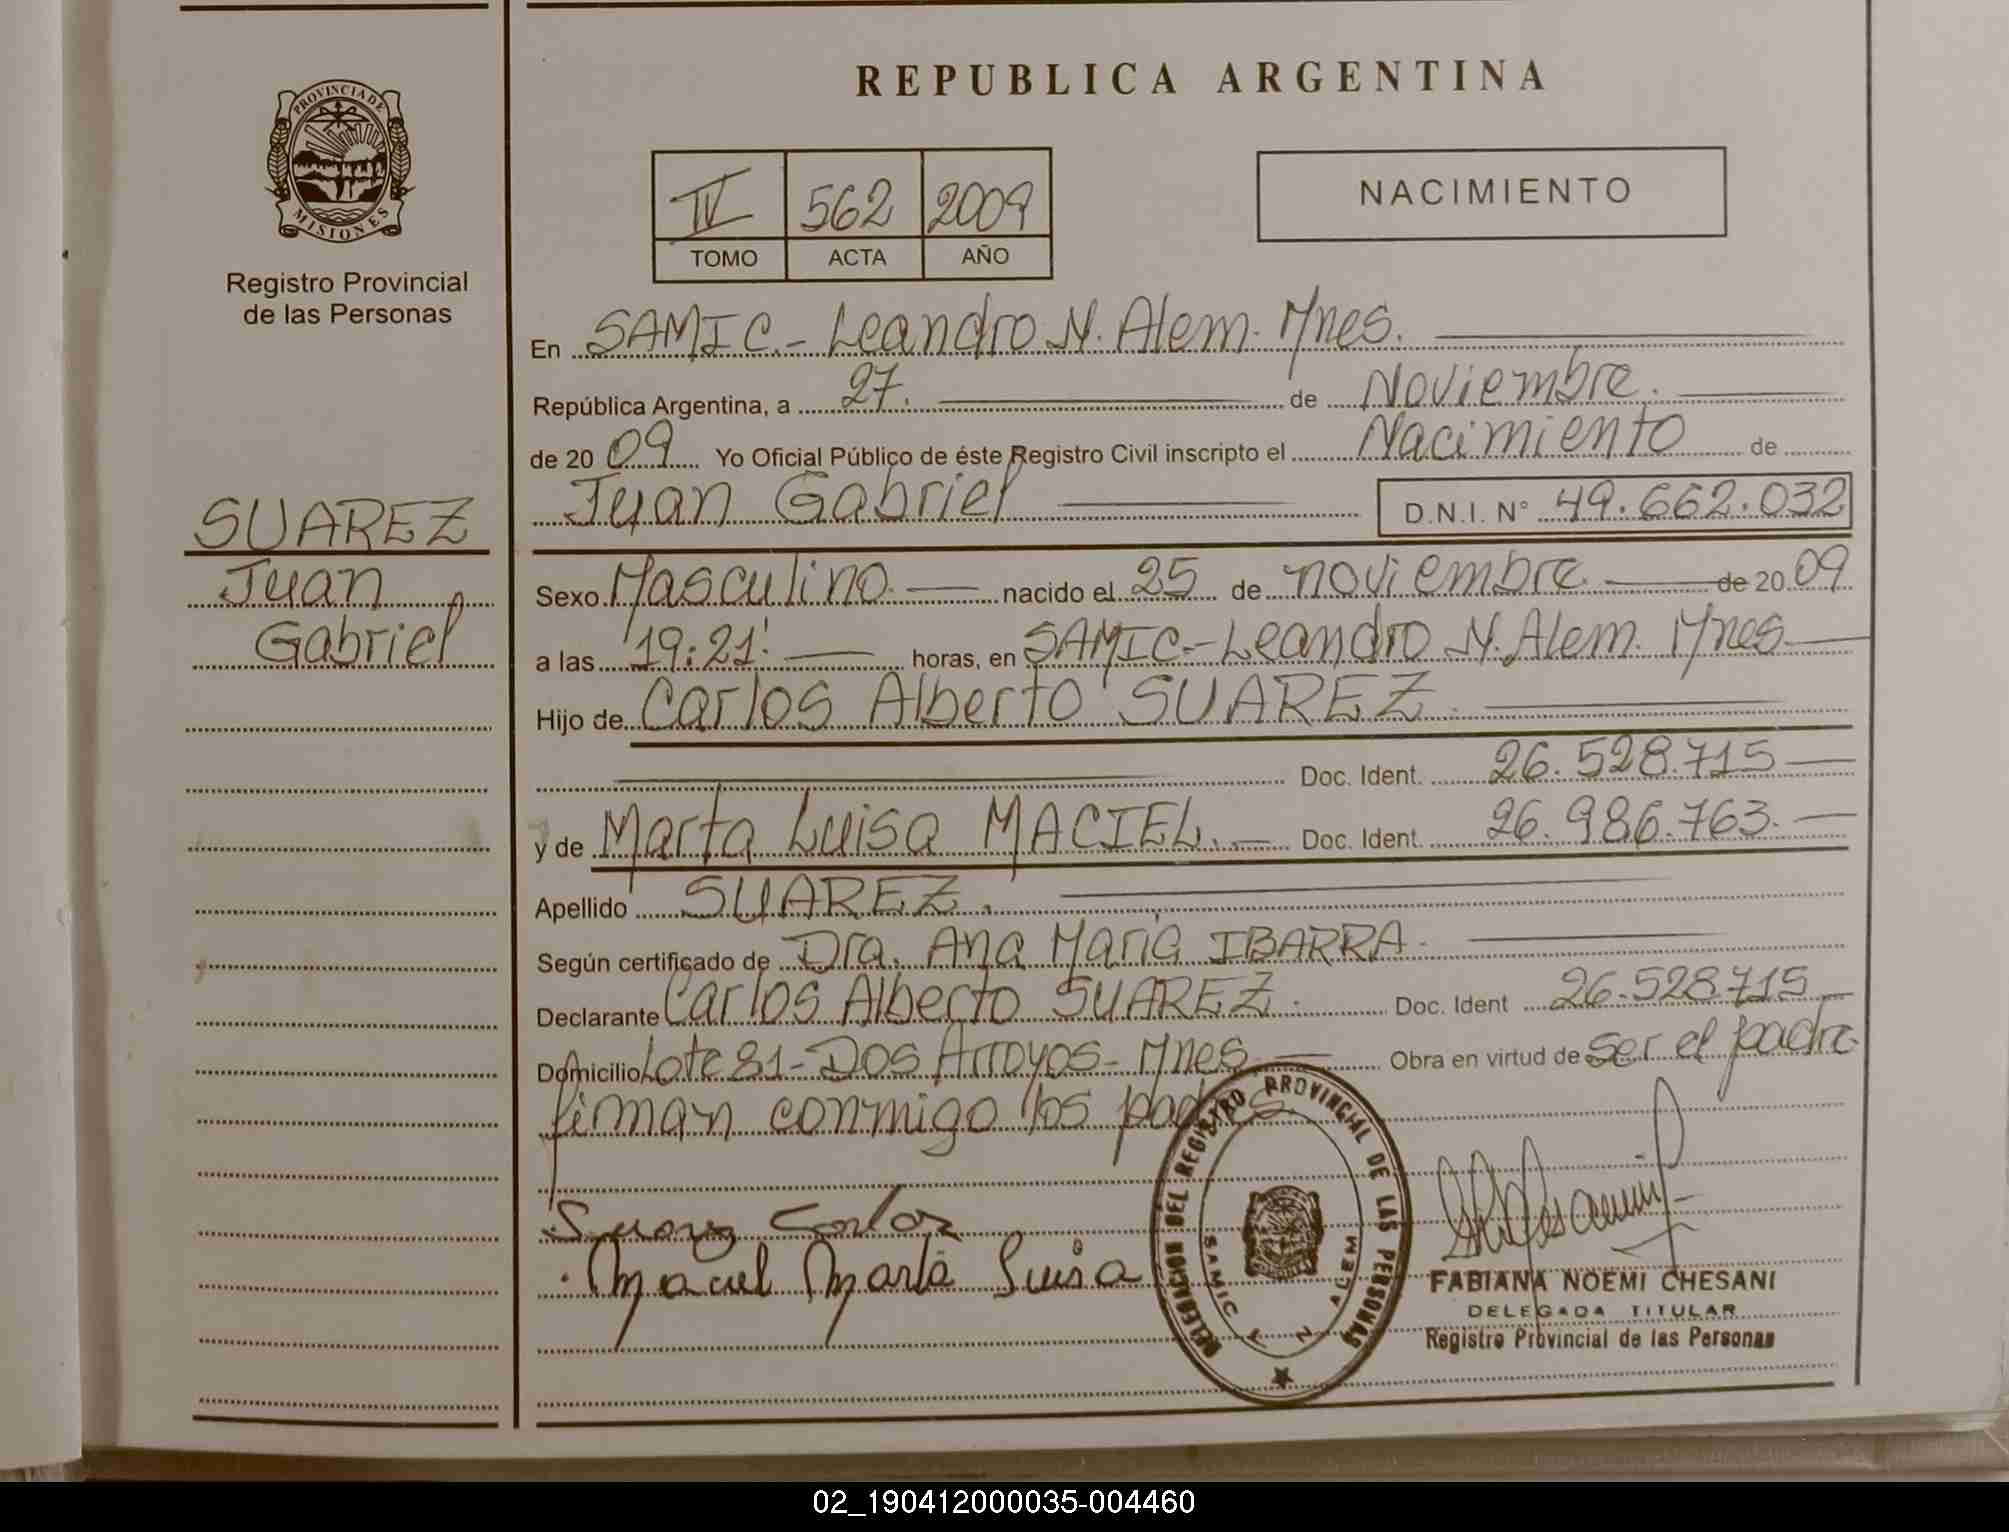 REPUBLICA ARGENTINA
PROVINCIA DE
MISIONES
Registro Provincial
de las Personas
IV 562 2009
TOMO ACTA AÑO
NACIMIENTO
SUAREZ
Juan
Gabriel
En SAMIC.- Leandro N. Alem. Mnes.
República Argentina, a 27. de Noviembre.
de 20 09 Yo Oficial Público de éste Registro Civil inscripto el Nacimiento de
Juan Gabriel D.N.I. N° 49.662.032
Sexo Masculino nacido el 25 de noviembre de 20 09
a las 19:21' horas, en SAMIC.- Leandro N. Alem. Mnes.
Hijo de Carlos Alberto SUAREZ.
Doc. Ident. 26.528.715
y de Marta Luisa MACIEL. Doc. Ident. 26.986.763.
Apellido SUAREZ.
Según certificado de Dra. Ana María IBARRA.
Declarante Carlos Alberto SUAREZ. Doc. Ident 26.528715
Domicilio Lote 81- Dos Arroyos- Mnes. Obra en virtud de ser el padre.
firman conmigo los padres.
Suarez Carlos
Maciel Marta Luisa
DELEGACION DEL REGISTRO PROVINCIAL DE LAS PERSONAS
SAMIC L N ALEM
FABIANA NOEMI CHESANI
DELEGADA TITULAR
Registro Provincial de las Personas
02_190412000035-004460